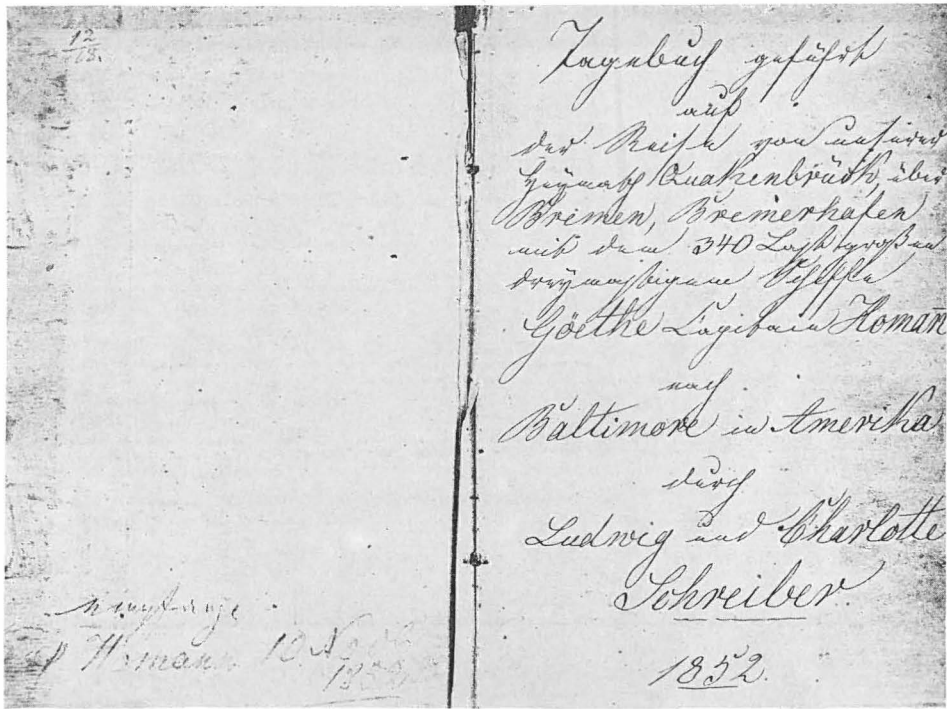 12
/63.
Tagebuch geführt
auf
der Reise von unserer
Heymath Quakenbrück, über
Bremen, Bremerhafen
mit dem 340 Last großen
dreymastigem Schiffe
Göethe Capitain Homañ
nach
Baltimore in Amerika
durch
Ludwig und Charlotte
Schreiber.
1852.
Homann 10
1852